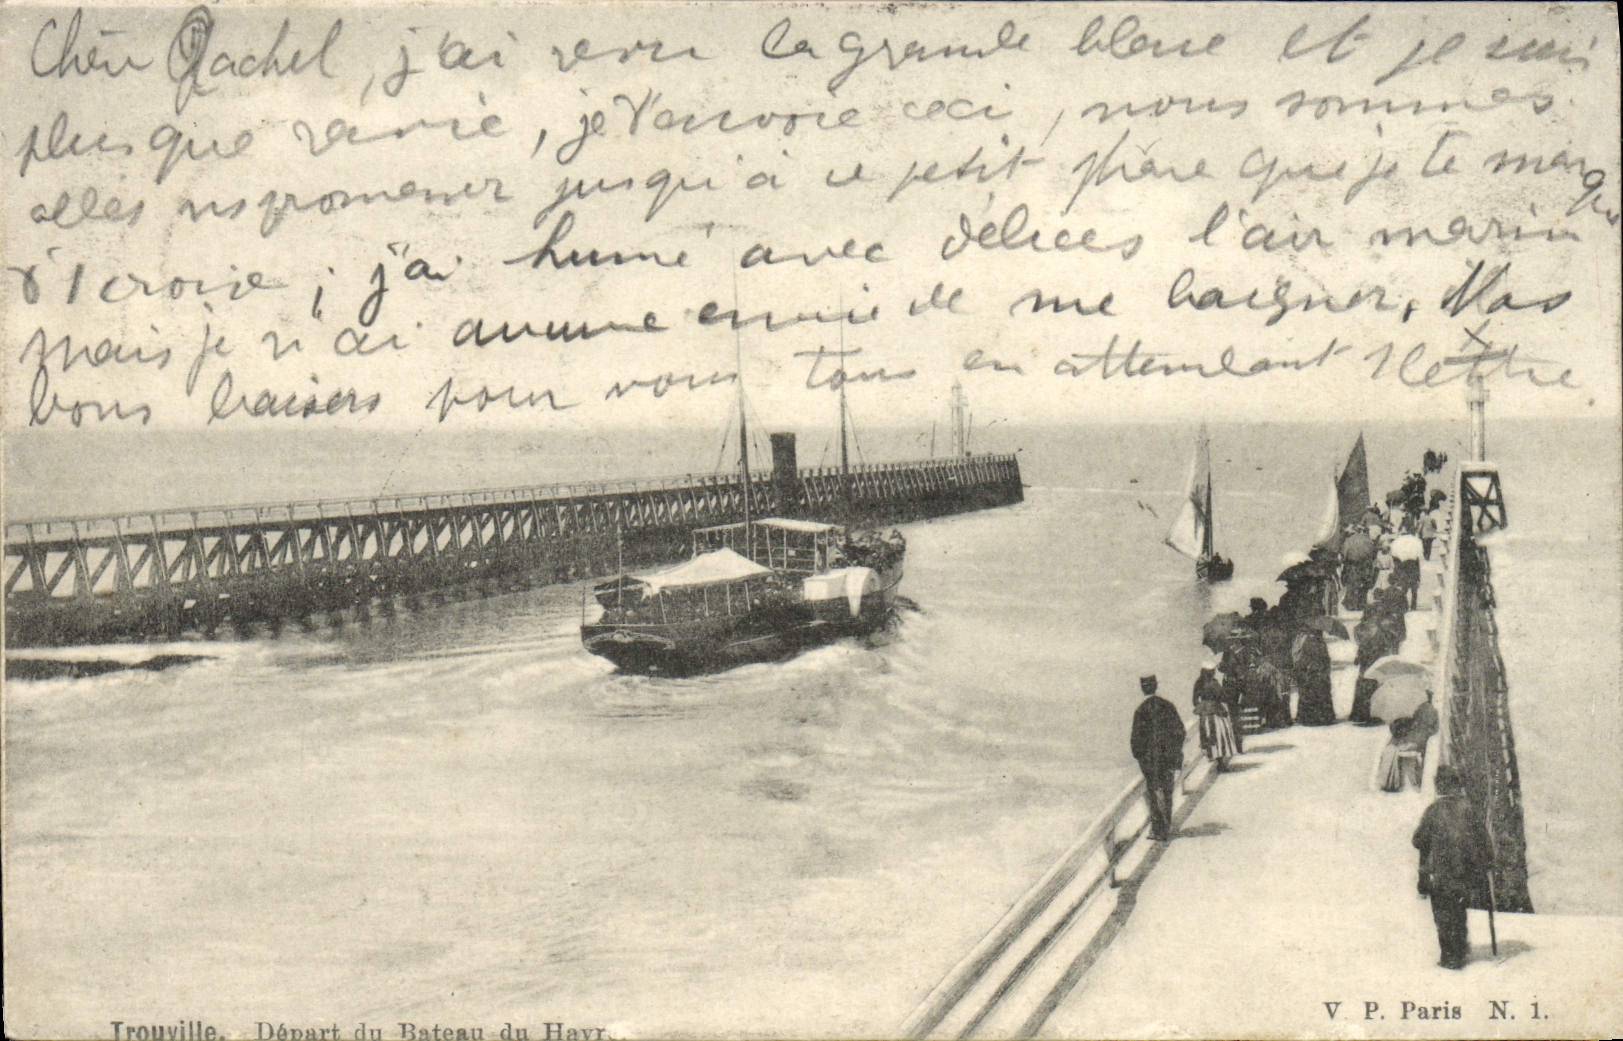 Chère Rachel, j'ai revu la grande bleue et je suis
plus que ravie, je t'envoie ceci, nous sommes
allés ns promener jusqu'à ce petit phare que je te marque
d'1 croix ; j'ai humé avec délices l'air marin
mais je n'ai aucune envie de me baigner. Nos
bons baisers pour vous tous en attendant 1 lettre.
X
Trouville. Départ du Bateau du Havre.
V. P. Paris N. 1.